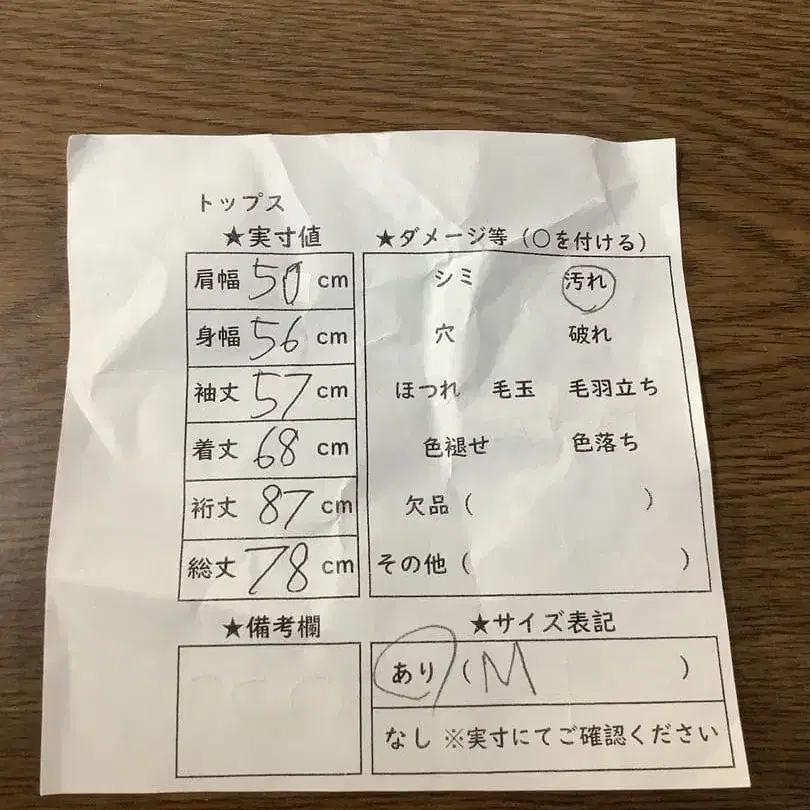 トップス
★実寸値
肩幅 50 cm
身幅 56 cm
袖丈 57 cm
着丈 68 cm
裄丈 87 cm
総丈 78 cm
★ダメージ等（○を付ける）
シミ 汚れ
穴 破れ
ほつれ 毛玉 毛羽立ち
色褪せ 色落ち
欠品（ ）
その他（ ）
★備考欄
★サイズ表記
あり（M ）
なし ※実寸にてご確認ください